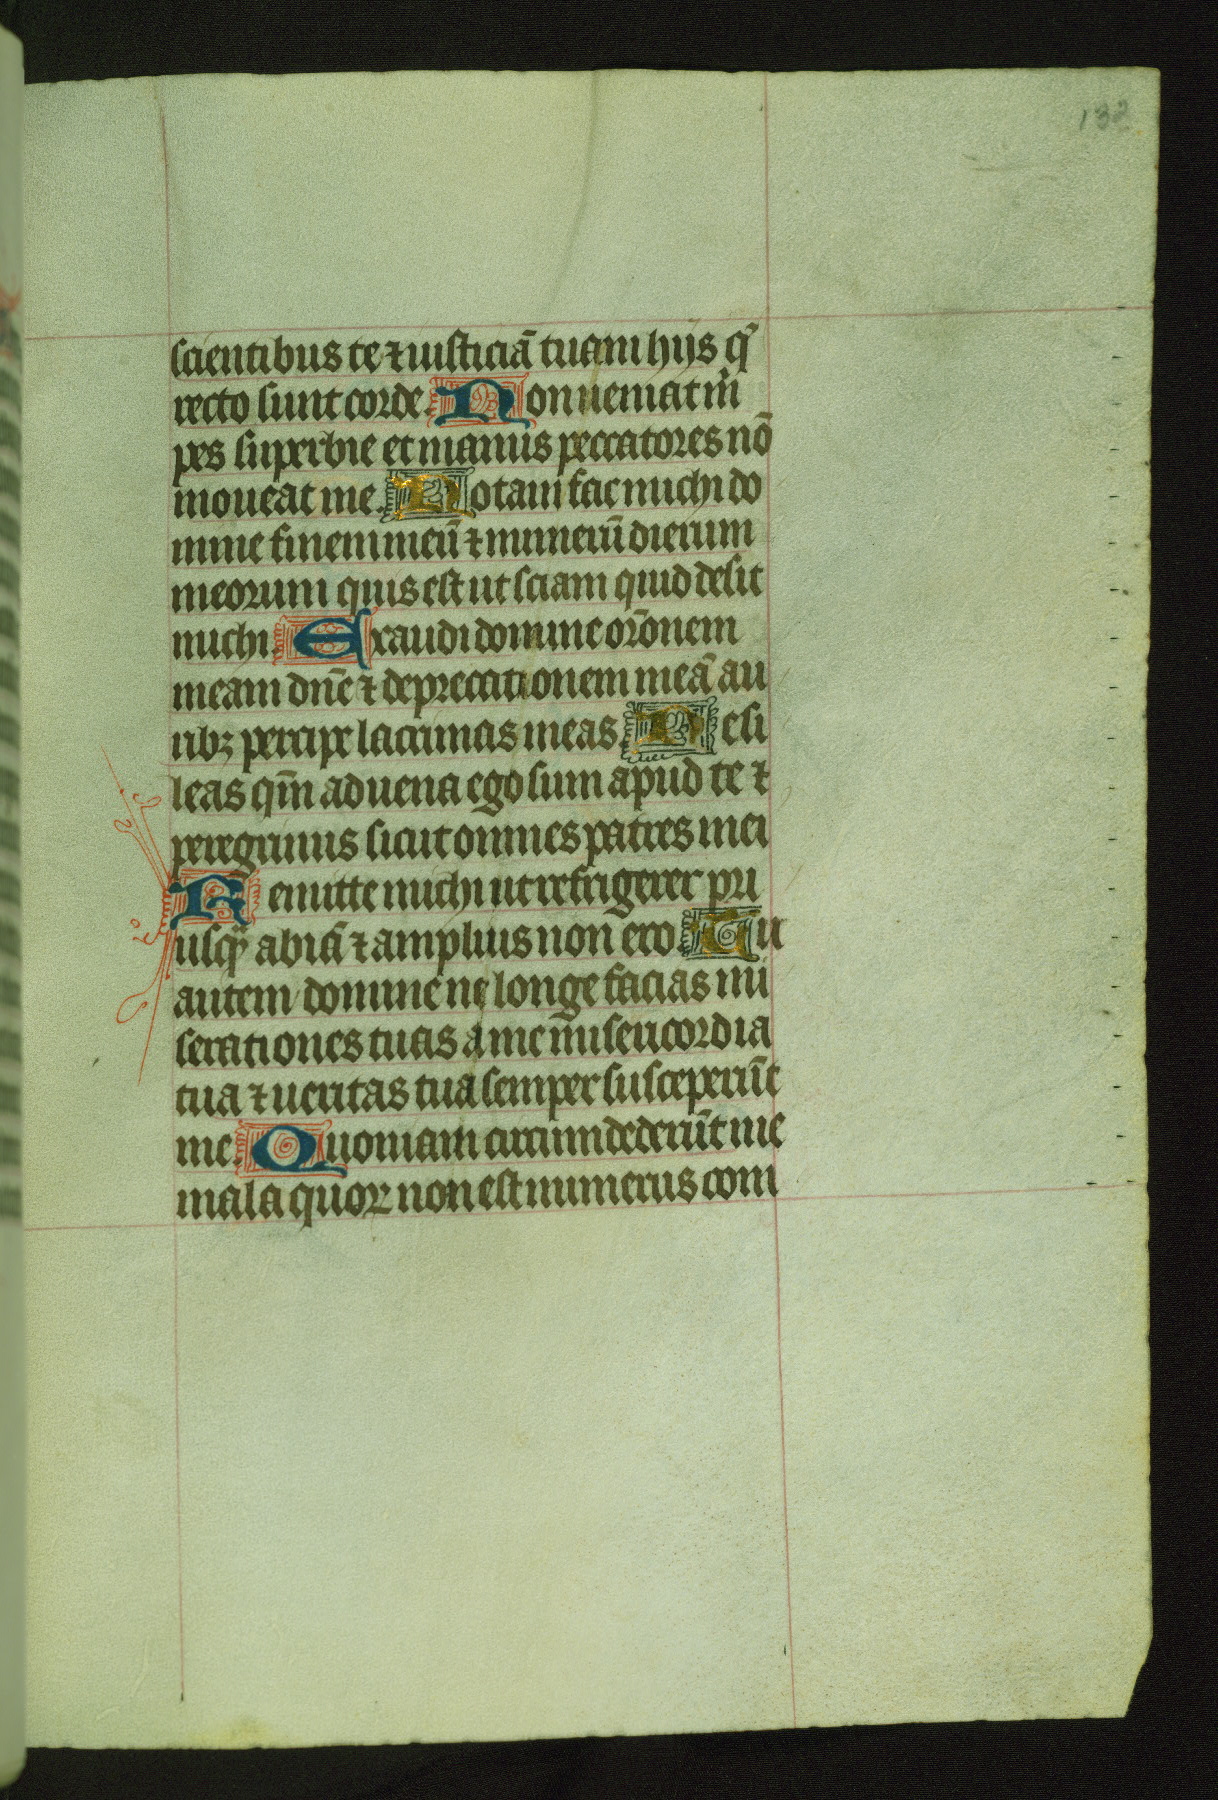 132
scientibus te ⁊ iusticiā tuam hijs qͥ
recto sunt corde. Non ueniat m̄
pes superbie et manus peccatores nō
moueat me. Notam fac michi do
mine finem meū ⁊ numerū dierum
meorum quis est ut sciam quid desit
michi. Exaudi domine orōnem
meam dn̄e ⁊ deprecationem meā au
ribꝫ percipe lacrimas meas. Ne si
leas qm̄ aduena ego sum apud te ⁊
peregrinus sicut omnes patres mei
Remitte michi ut refrigerer pri
usqꝫ abiā ⁊ amplius non ero. Tu
autem domine ne longe facias mi
serationes tuas a me misericordia
tua ⁊ ueritas tua semper susceperūt
me. Quoniam circumdederūt me
mala quoꝝ non est numerus com